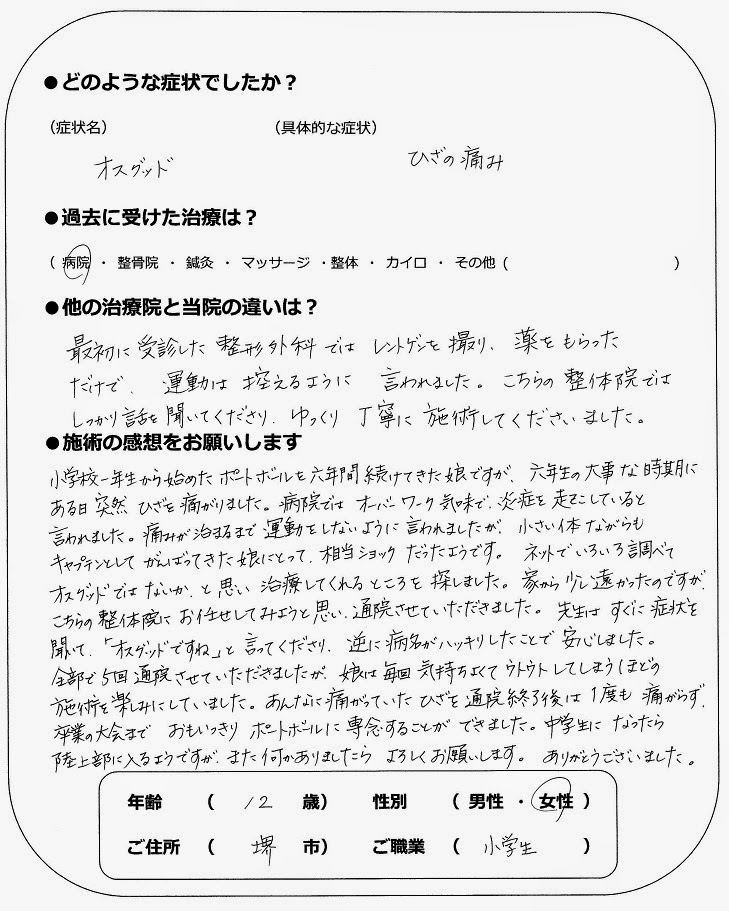 ●どのような症状でしたか？
（症状名）　（具体的な症状）
オスグッド　ひざの痛み
●過去に受けた治療は？
（ 病院 ・ 整骨院 ・ 鍼灸 ・ マッサージ ・整体 ・ カイロ ・ その他 (　　　）
●他の治療院と当院の違いは？
最初に受診した整形外科ではレントゲンを撮り、薬をもらった
だけで、運動は控えるように言われました。こちらの整体院では
しっかり話を聞いてくださり、ゆっくり丁寧に施術してくださいました。
●施術の感想をお願いします
小学校一年生から始めたポートボールを六年間続けてきた娘ですが、六年生の大事な時期に
ある日突然ひざを痛がりました。病院ではオーバーワーク気味で、炎症を起こしていると
言われました。痛みが治まるまで運動をしないように言われましたが、小さい体ながらも
キャプテンとしてがんばってきた娘にとって、相当ショックだったようです。ネットでいろいろ調べて
オスグッドではないか、と思い治療してくれるところを探しました。家から少し遠かったのですが、
こちらの整体院にお任せしてみようと思い、通院させていただきました。先生はすぐに症状を
聞いて、「オスグッドですね」と言ってくださり、逆に病名がハッキリしたことで安心しました。
全部で5回通院させていただきましたが、娘は毎回気持ちよくてウトウトしてしまうほどの
施術を楽しみにしていました。あんなに痛がっていたひざを通院終了後は1度も痛がらず、
卒業の大会までおもいっきりポートボールに専念することができました。中学生になったら
陸上部に入るようですが、また何かありましたらよろしくお願いします。ありがとうございました。
年齢　（　12　歳）　性別　（ 男性 ・ 女性 ）
ご住所　（　堺　市）　ご職業　（　小学生　）